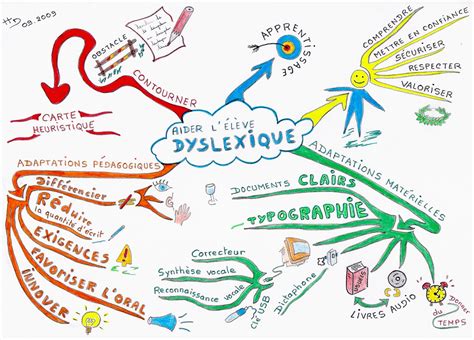 HD
09.2009
OBSTACLE
CONTOURNER
CARTE
HEURISTIQUE
APPRENTISSAGE
COMPRENDRE
METTRE EN CONFIANCE
SÉCURISER
RESPECTER
VALORISER
AIDER L'ÉLÈVE
DYSLEXIQUE
ADAPTATIONS PÉDAGOGIQUES
Différencier
RÉDuire
la quantité d'écrit
EXIGENCES
FAVORISER L'ORAL
INNOVER
ADAPTATIONS MATÉRIELLES
DOCUMENTS CLAIRS
TYPOGRAPHIE
Correcteur
Synthèse vocale
Reconnaissance vocale
Clé USB
Dictaphone
LIVRES AUDIO
Donner
du
TEMPS